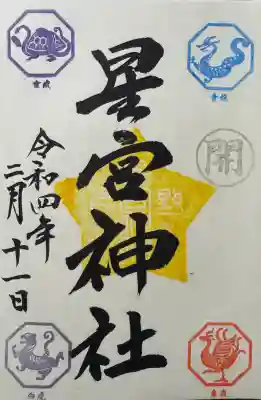 星宮神社
令和四年
二月十一日
玄武
青龍
開
白虎
朱雀